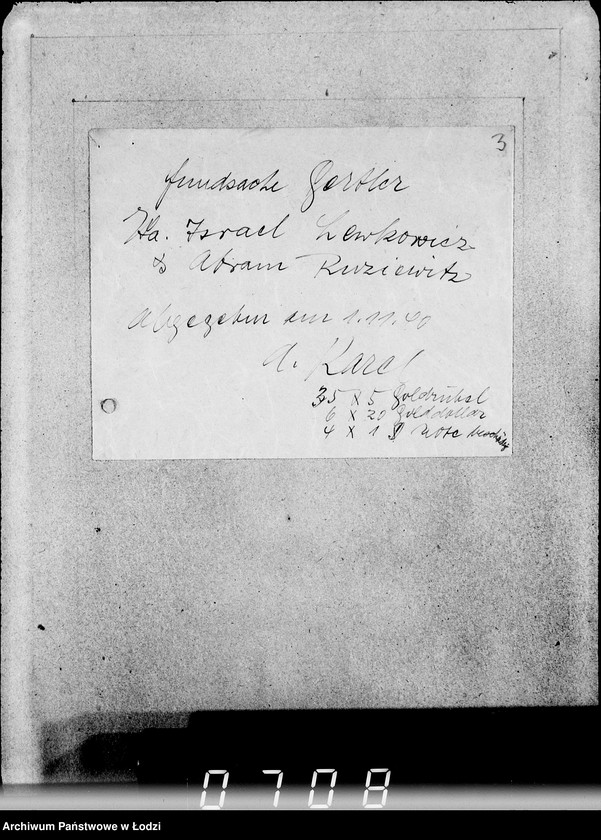 3
Fundsache Gertler
Fa. Israel Lewkowicz
& Abram Kuziewitz
Abgegeben am 1.11.40
d. Karel
35 X 5 Goldrubel
6 X 20 Golddollar
4 X 1 $ Note
0708
Archiwum Państwowe w Łodzi